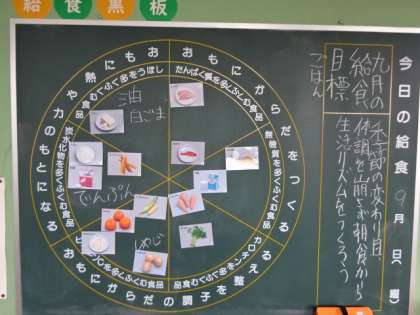 給食黒板
今日の給食 9月 日( 曜)
九月の
給食
目標
ごはん
季節の変わり目
体調を崩さず朝食から
生活リズムをつくろう
おもにからだをつくる
おもにからだの調子を整える
おもに熱や力のもとになる
たんぱく質を多くふくむ食品
無機質を多くふくむ食品
カロチンを多くふくむ食品
ビタミンCを多くふくむ食品
炭水化物を多くふくむ食品
しぼうを多くふくむ食品
油
白ごま
でんぷん
しめじ